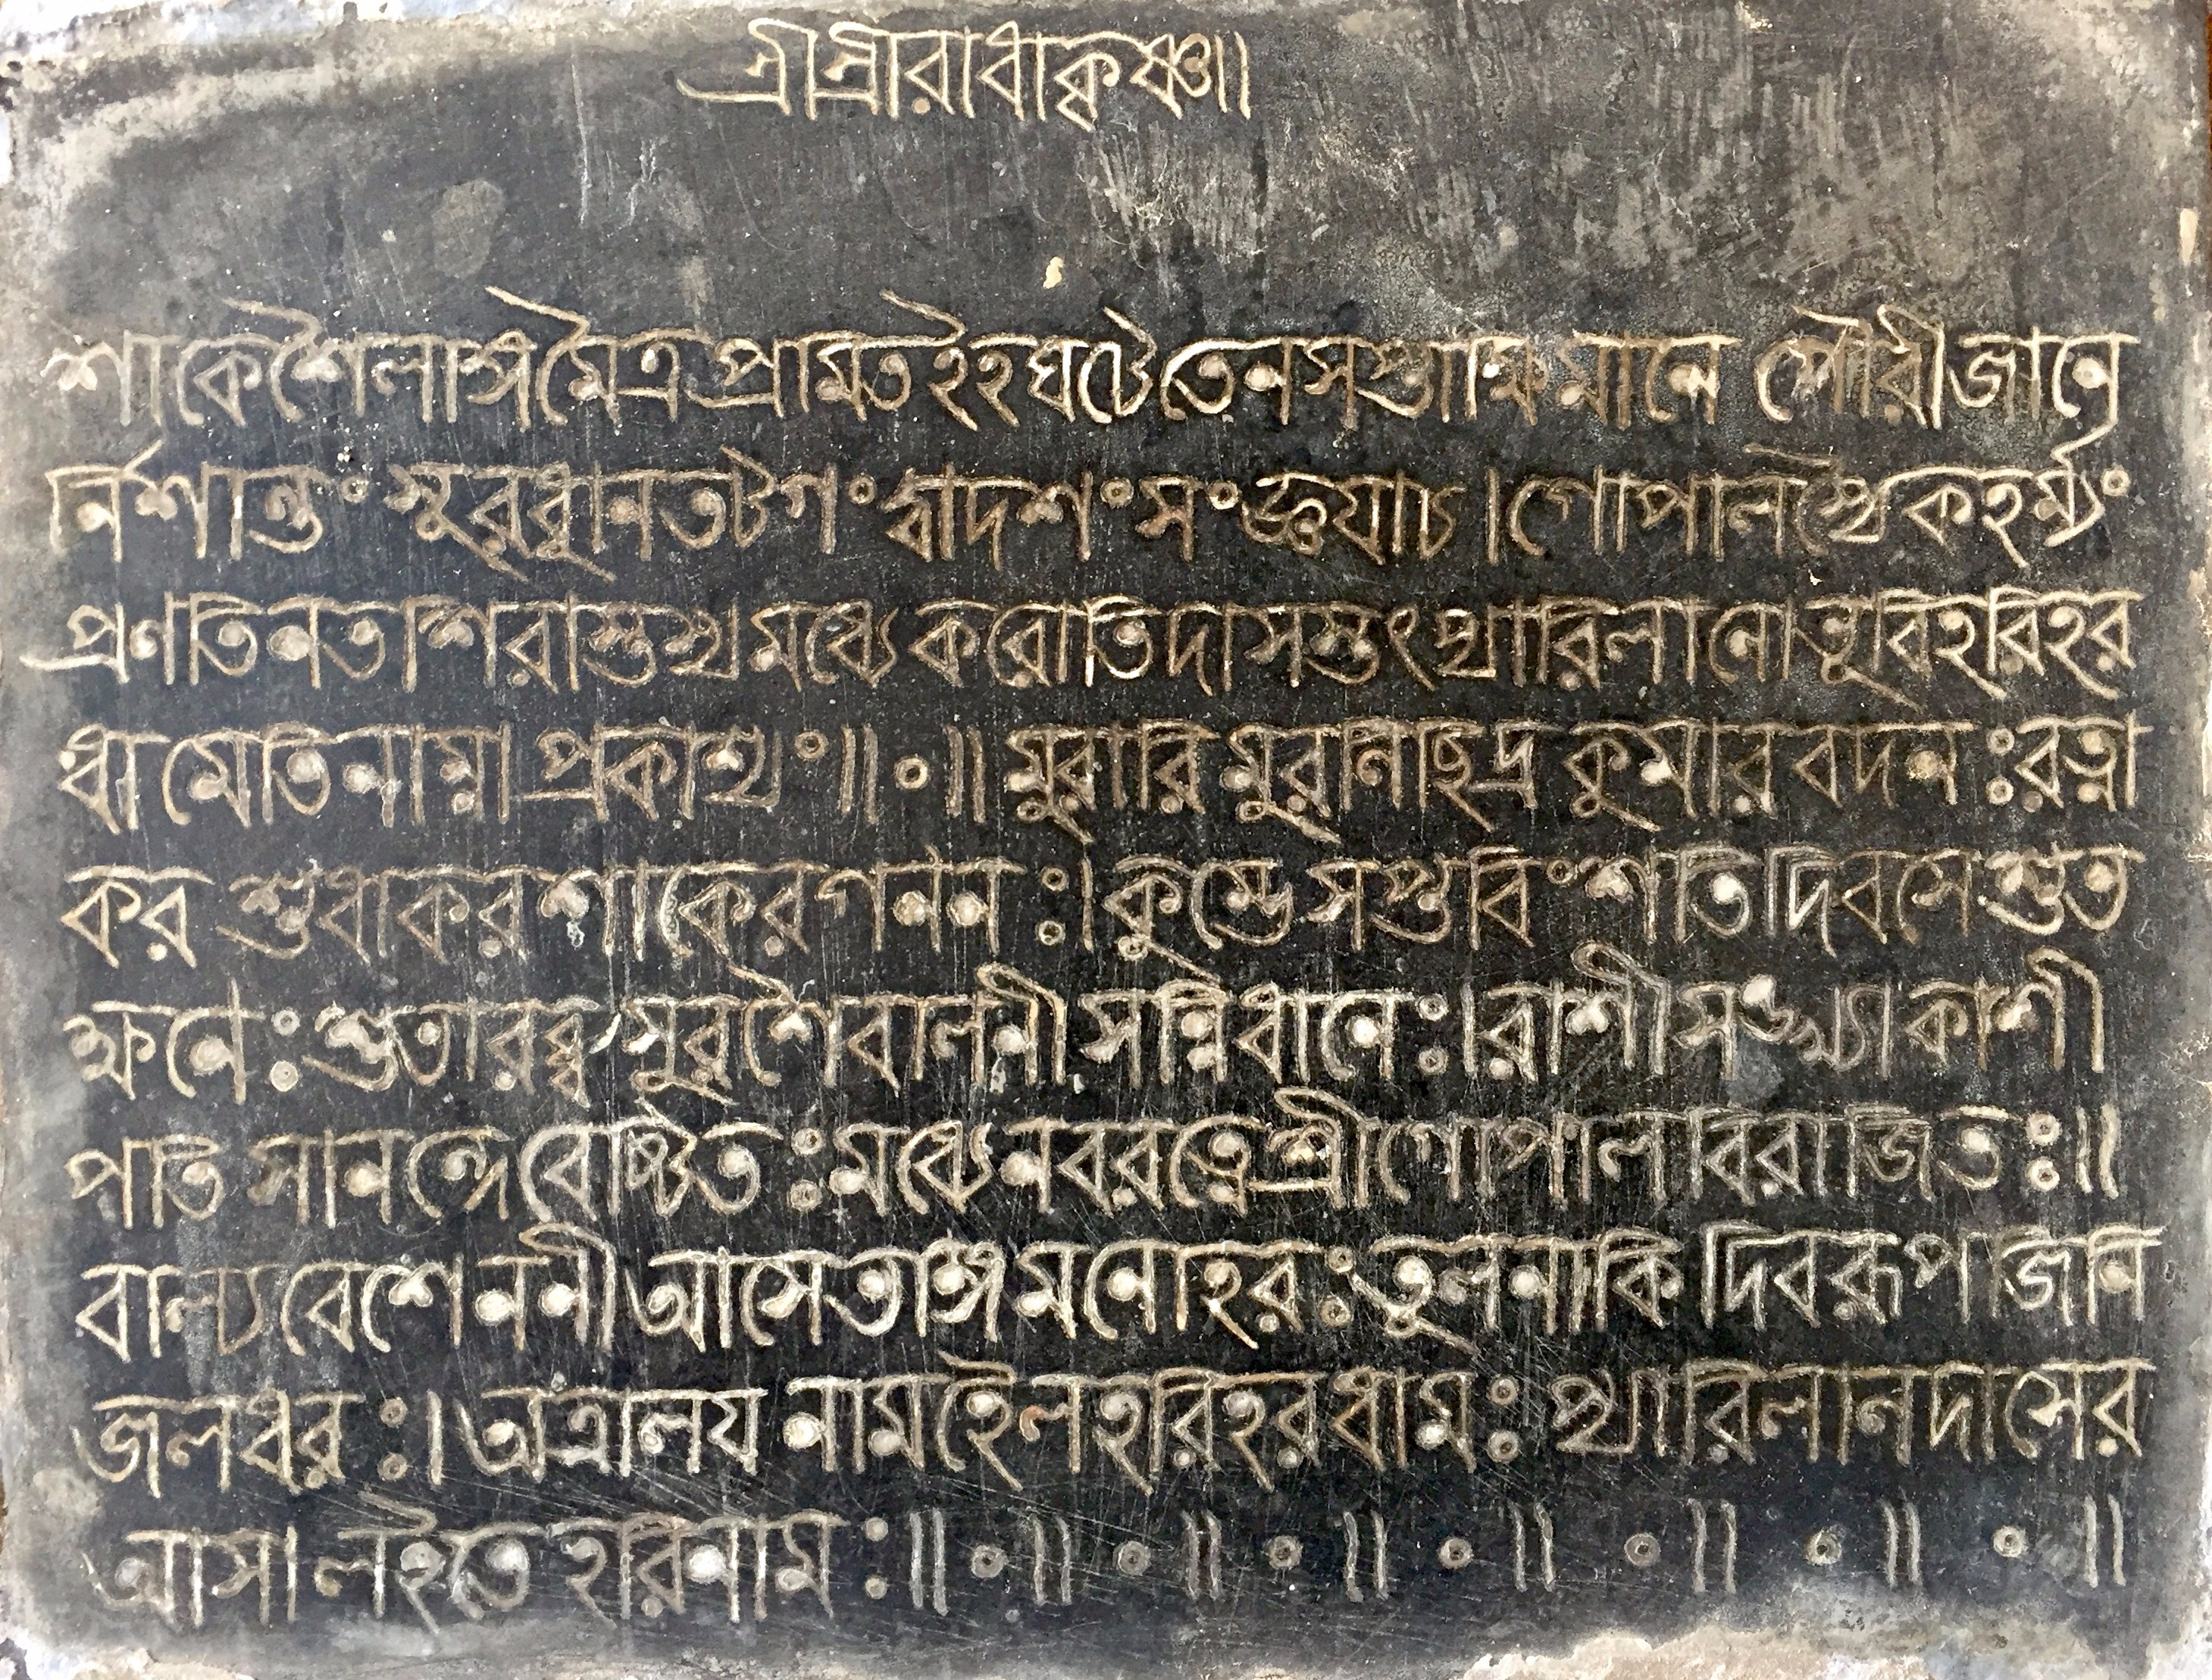 শ্রীশ্রীরাধাকৃষ্ণ॥
শাকেশৈলাঙ্গমৈত্র প্রমিতইহঘটেতেনসপ্তাক্ষিমানে সৌরীজানে
র্নিশান্ত° সুরধুনিতটগ° দ্বাদশ°স°জ্ঞযাচ।গোপালস্থৈকহর্ম্ম্য°
প্রণতিনতশিরাস্তস্থমধ্যেকরোতিদাসস্তৎপ্যারিলালোভূবিহরিহর
ধামেতিনাম্নাপ্রকাশ্য°॥•॥মুরারি মুরলিছিদ্র কুমার বদন:রত্না
কর শুধাকর শাকের গনন:।কুম্ভেসপ্তবি°শতিদিবসেশুভ
ক্ষনে:শুভারব্ধ সুরশৈবালনী সন্নিধানে:।রাশীসঙ্খ্যাকাশী
পতি সানন্দেবেষ্টিত:মধ্যেনবরত্নেশ্রীগোপালবিরাজিত:॥
বাল্যবেশে ননী আসেতাঙ্গমনোহর:তুলনাকি দিবরূপ জিনি
জলধর:।অত্রালয় নামহৈলহরিহরধাম:প্যারিলালদাসের
আসা লইতে হরিনাম:॥•॥•॥•॥•॥•॥•॥•॥